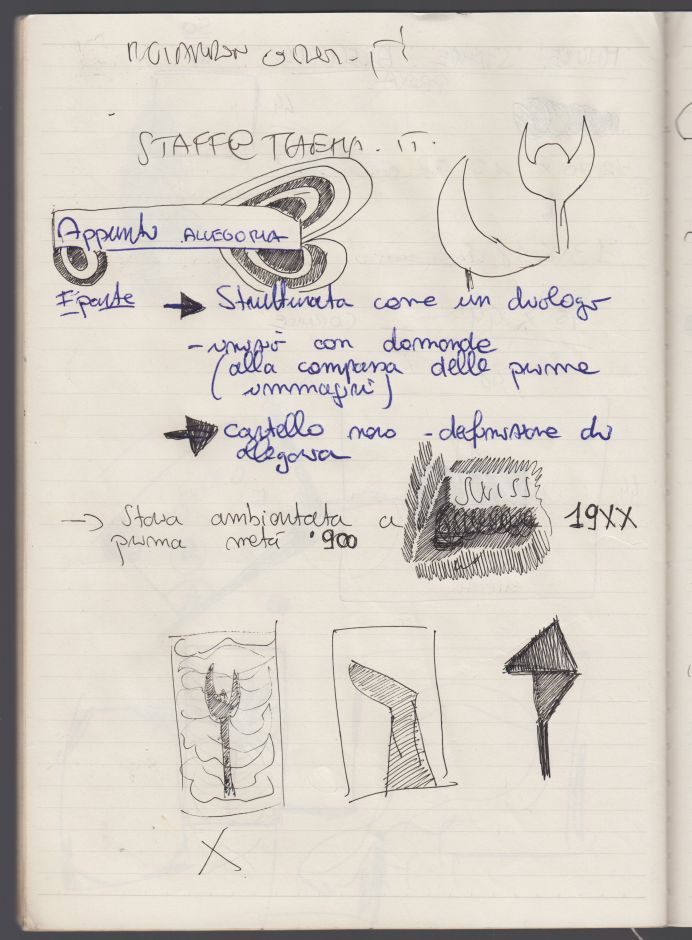 STAFF@
Appunto ALLEGORIA
I° parte → Strutturata come un dialogo
- inizio con domande
(alla comparsa delle prime
immagini)
→ cartello nero - definizione di
allegoria
→ Storia ambientata a SUISS 19XX
prima metà '900
X